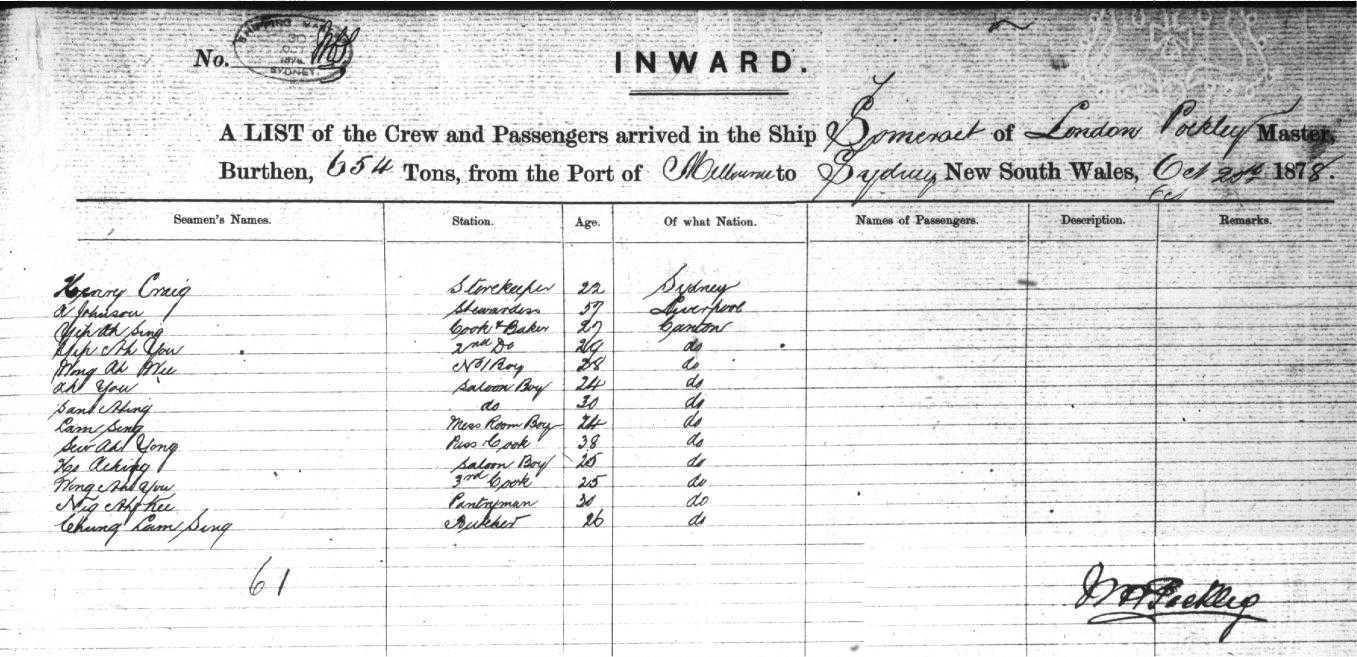 No.
SHIPPING
30
OCT
1878
SYDNEY
INWARD.
A LIST of the Crew and Passengers arrived in the Ship Somerset of London Pockley Master,
Burthen, 654 Tons, from the Port of Melbourne to Sydney New South Wales, Oct 1878.
Seamen's Names. Station. Age. Of what Nation. Names of Passengers. Description. Remarks.
Henry Craig Storekeeper 22 Sydney
A Johnson Stewardess 37 Liverpool
Yip Ah Sing Cook & Baker 27 Canton
Yip Ah You 2nd Do 29 do
Wong Ah No 1 Boy 28 do
Ah You Saloon Boy 24 do
do 30 do
Lam Sing Mess Room Boy 24 do
Ah Yong Cook 38 do
Saloon Boy 25 do
Wong Ah You 3rd Cook 25 do
Ah Kee Pantryman 30 do
Chung Lam Sing Butcher 26 do
61
Pockley